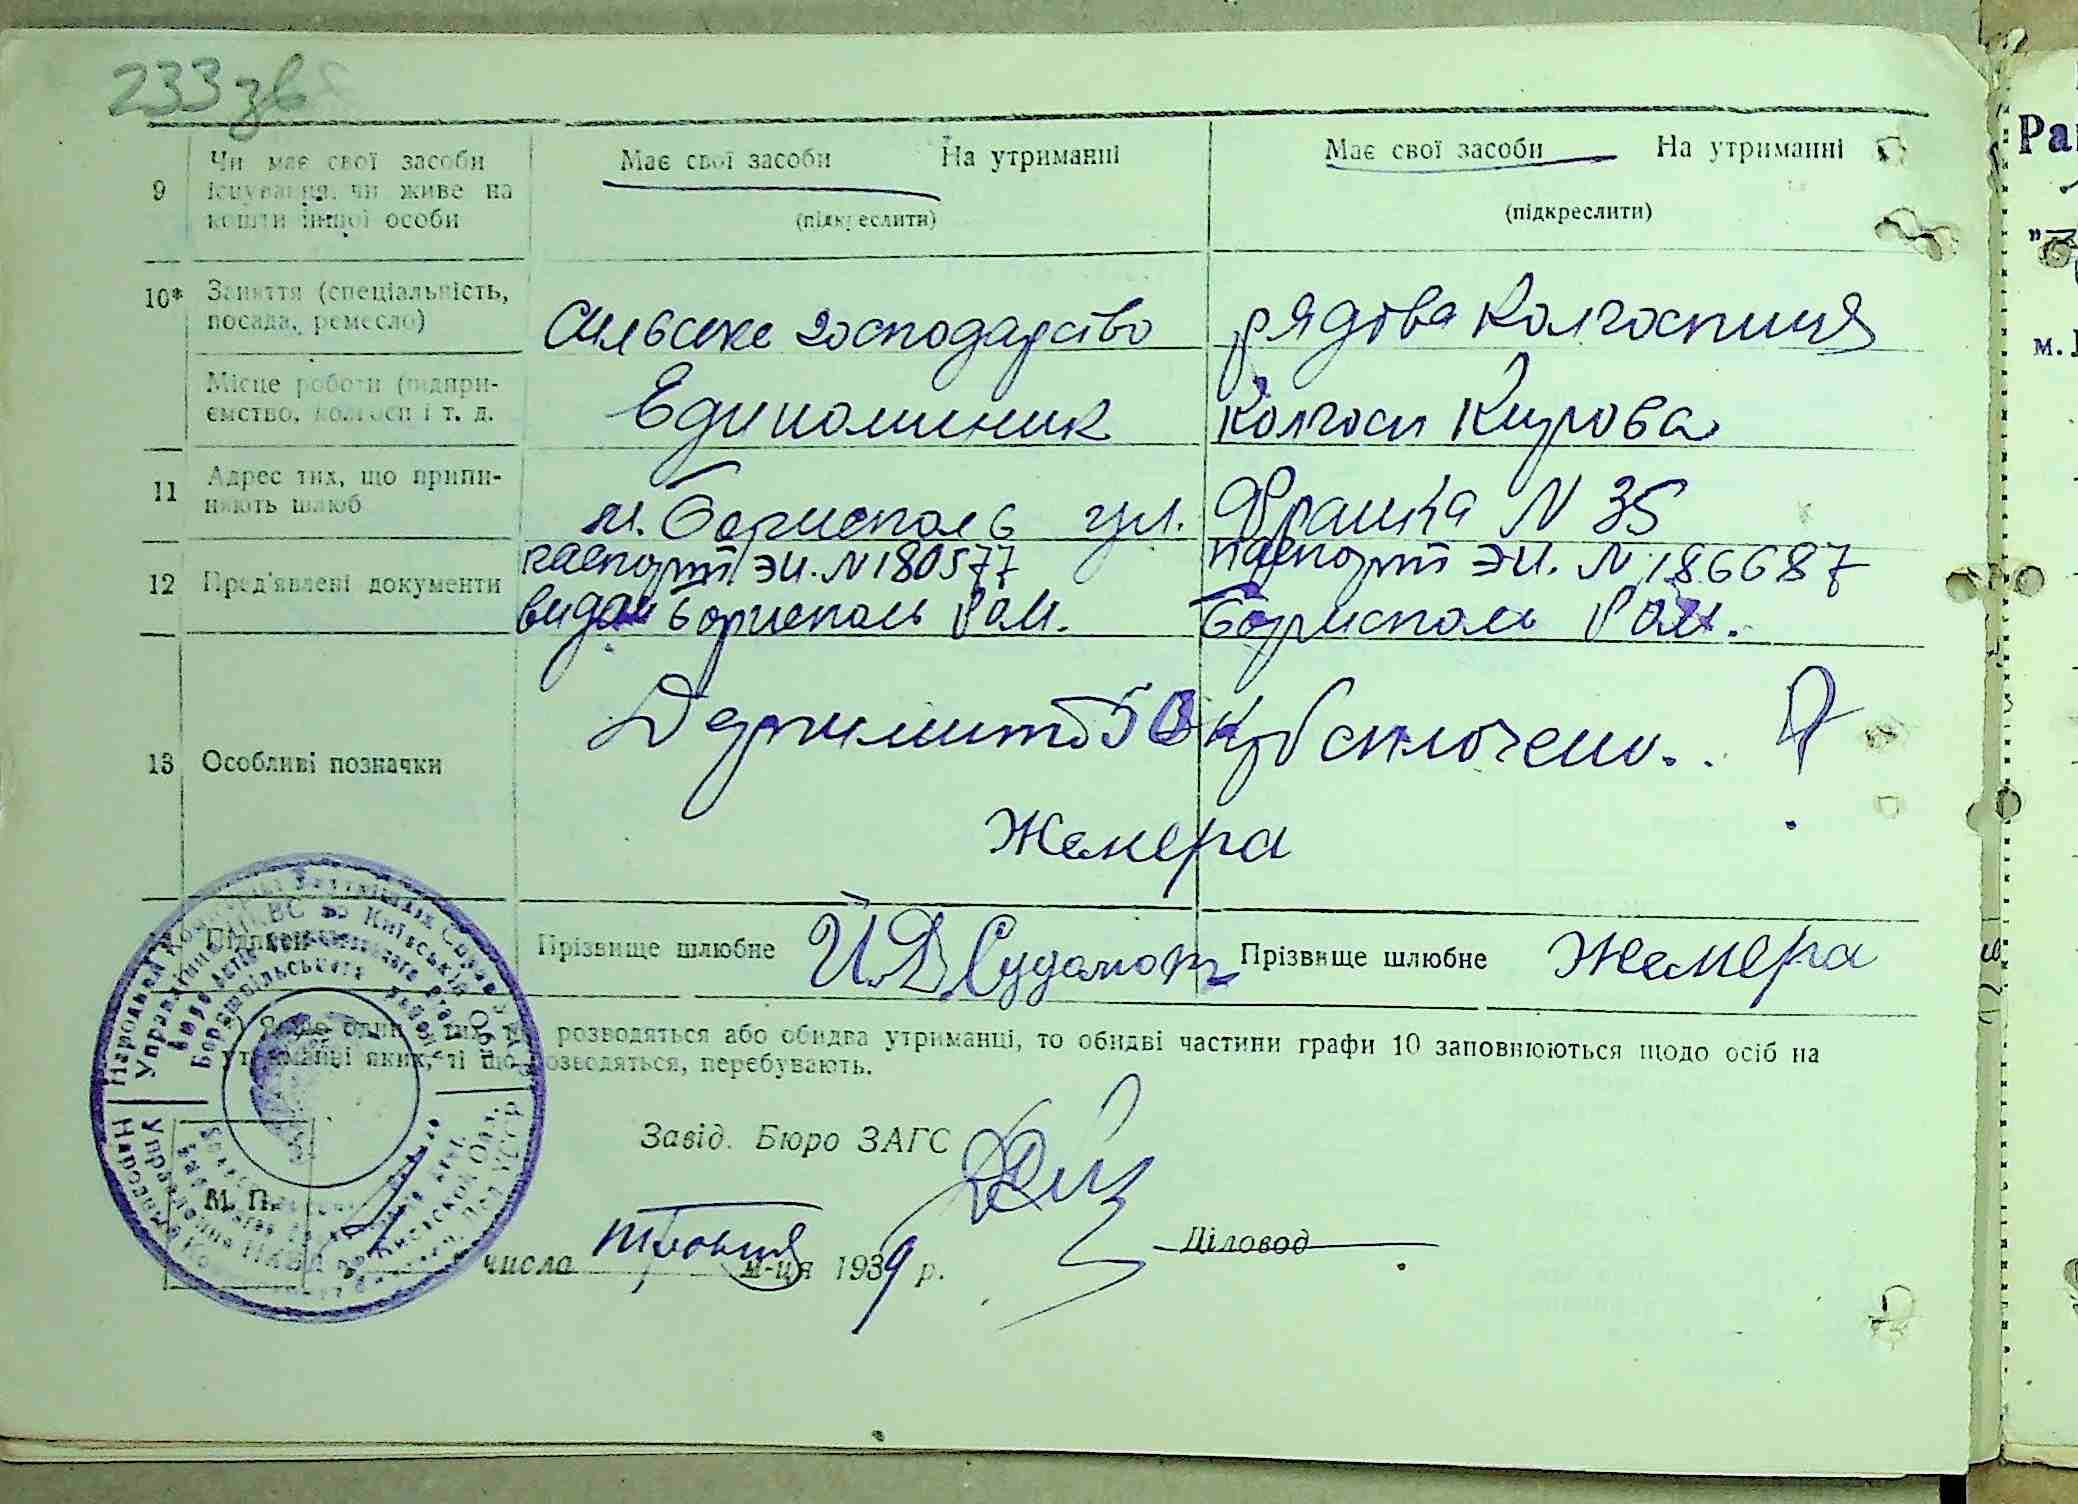 233 зв
9 Чи має свої засоби існування, чи живе на кошти іншої особи
Має свої засоби На утриманні
(підкреслити)
Має свої засоби На утриманні
(підкреслити)
10* Заняття (спеціальність, посада, ремесло)
Сильське господарство
рядова колгоспниця
Місце роботи (підпри-
ємство, колгосп і т. д.
Єдиноличник
Колгосп Кирова
11 Адрес тих, що припи-
няють шлюб
м. Бориспол ь ул. Франка N 35
12 Пред'явлені документи
паспорт ЭИ. N 180577
видан Борисполь Р ом.
паспорт ЭИ. N 186687
Борисполь Р ом.
13 Особливі позначки
Держмито 50 крб сплочено..
Жемера
Підписи
Прізвище шлюбне
И.Д.
Прізвище шлюбне Жемера
*) Якщо один з тих, що розводяться або обидва утриманці, то обидві частини графи 10 заповнюються щодо осіб на
утриманні яких, ті що розводяться, перебувають.
Завід. Бюро ЗАГС
М. П.
числа травня м-ця 1939 р.
Діловод
Ра
м.